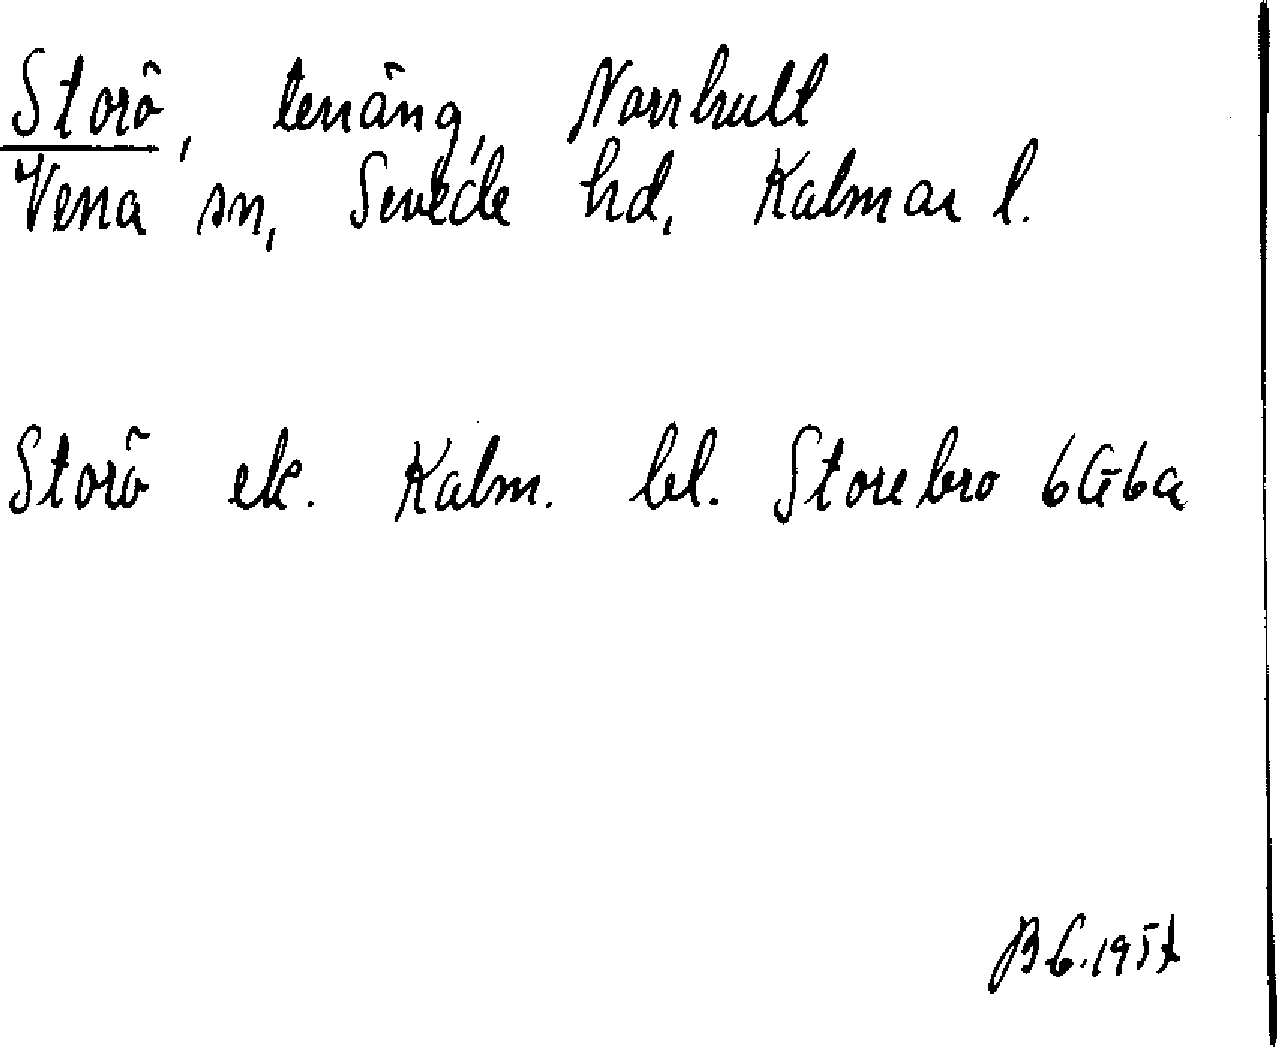 Storö, teräng, Norrhult
Vena sn, Sevede hd, Kalmar l.
Storö ek. Kalm. bl. Storebro 6G6a
BG.1957